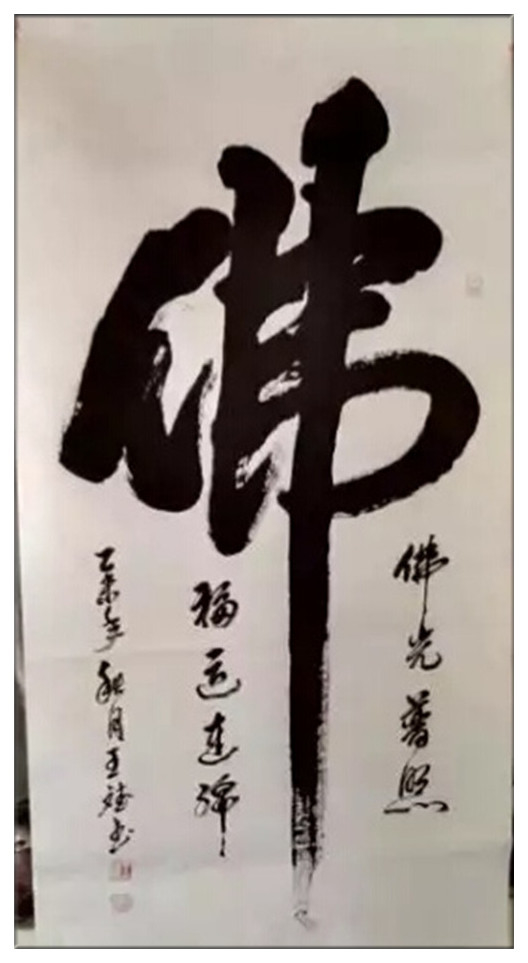 佛
佛光普照
福运连绵
乙未年秋月王斌书